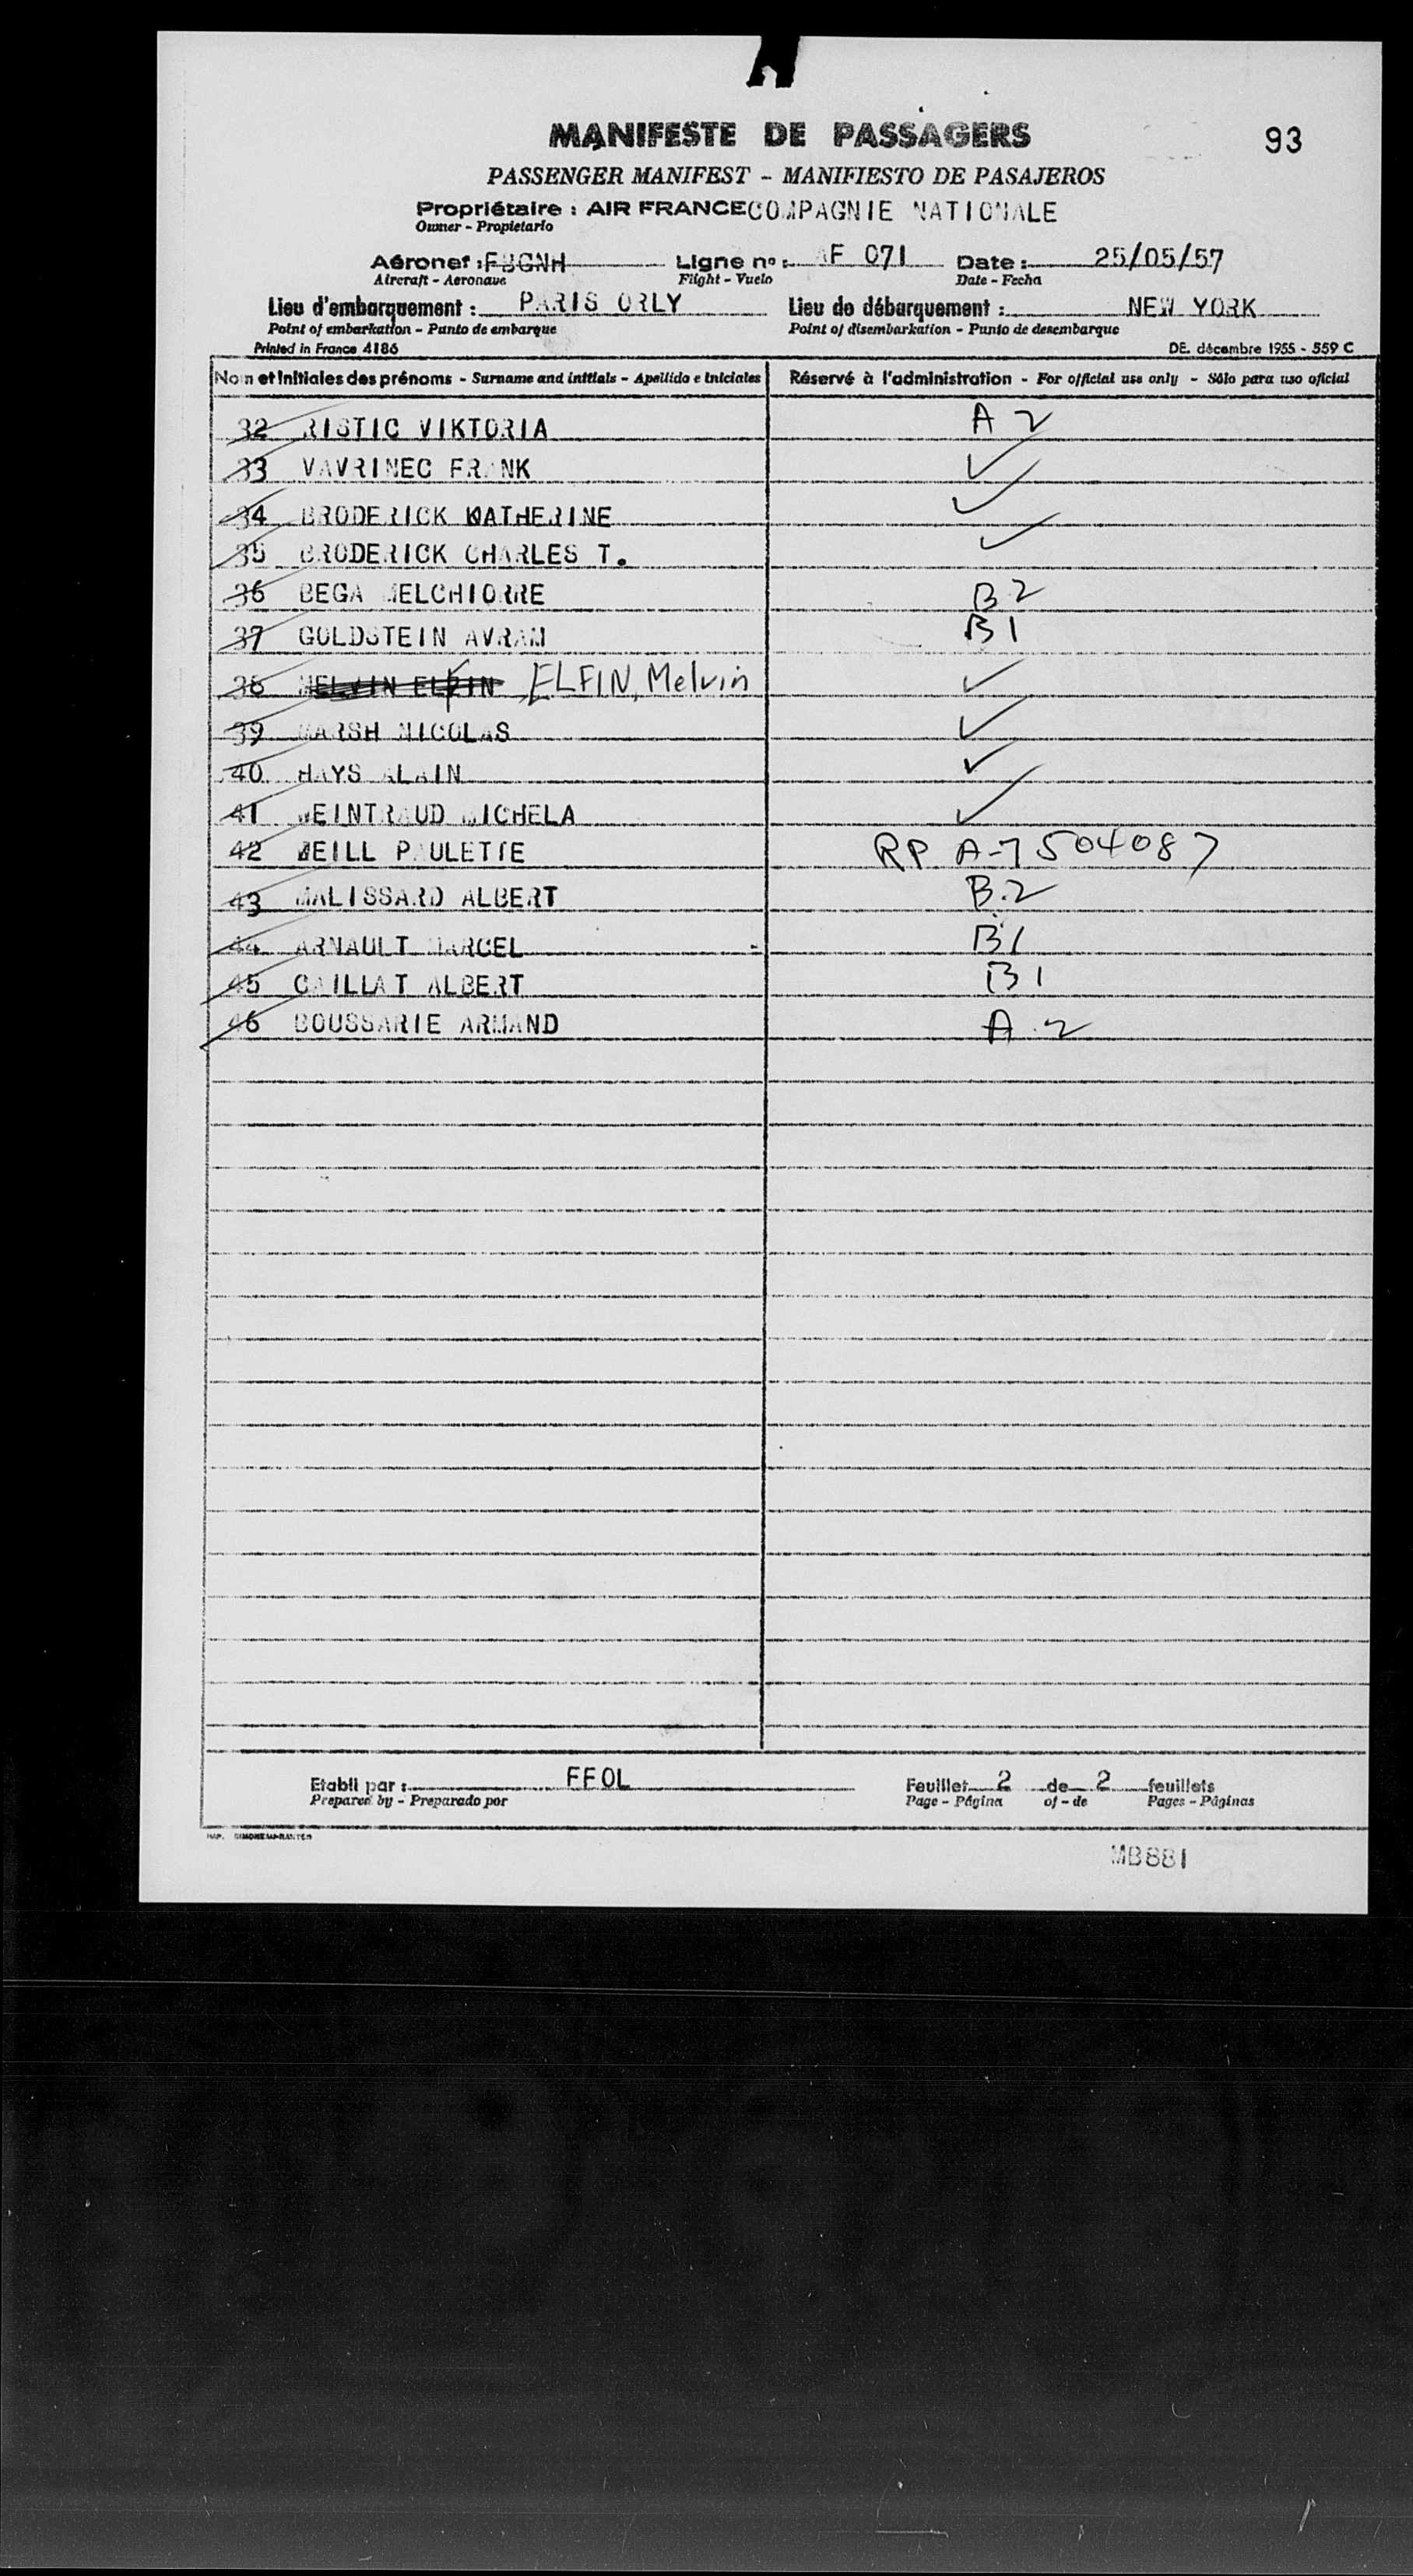 93
MANIFESTE DE PASSAGERS
PASSENGER MANIFEST - MANIFIESTO DE PASAJEROS
Propriétaire : AIR FRANCE COMPAGNIE NATIONALE
Owner - Propietario
Aéronef : FBGNH Ligne n° : AF 071 Date : 25/05/57
Aircraft - Aeronave Flight - Vuelo Date - Fecha
Lieu d'embarquement : PARIS ORLY Lieu de débarquement : NEW YORK
Point of embarkation - Punto de embarque Point of disembarkation - Punto de desembarque
Printed in France 4186 DE. décembre 1955 - 559 C
Nom et Initiales des prénoms - Surname and initials - Apellido e iniciales Réservé à l'administration - For official use only - Sólo para uso oficial
32 RISTIC VIKTORIA A 2
33 VAVRINEC FRANK ✓
34 BRODERICK KATHERINE ✓
35 BRODERICK CHARLES T. ✓
36 BEGA MELCHIORRE B2
37 GOLDSTEIN AVRAM B1
38 MELVIN ELFIN ELFIN, Melvin ✓
39 MARSH NICOLAS ✓
40 HAYS ALAIN ✓
41 WEINTRAUD MICHELA ✓
42 WEILL PAULETTE RP A-7504087
43 MALISSARD ALBERT B.2
44 ARNAULT MARCEL B1
45 CAILLAT ALBERT B1
46 BOUSSARIE ARMAND A.2
Etabli par : FFOL Feuillet 2 de 2 feuillets
Prepared by - Preparado por Page - Página of - de Pages - Páginas
MB881